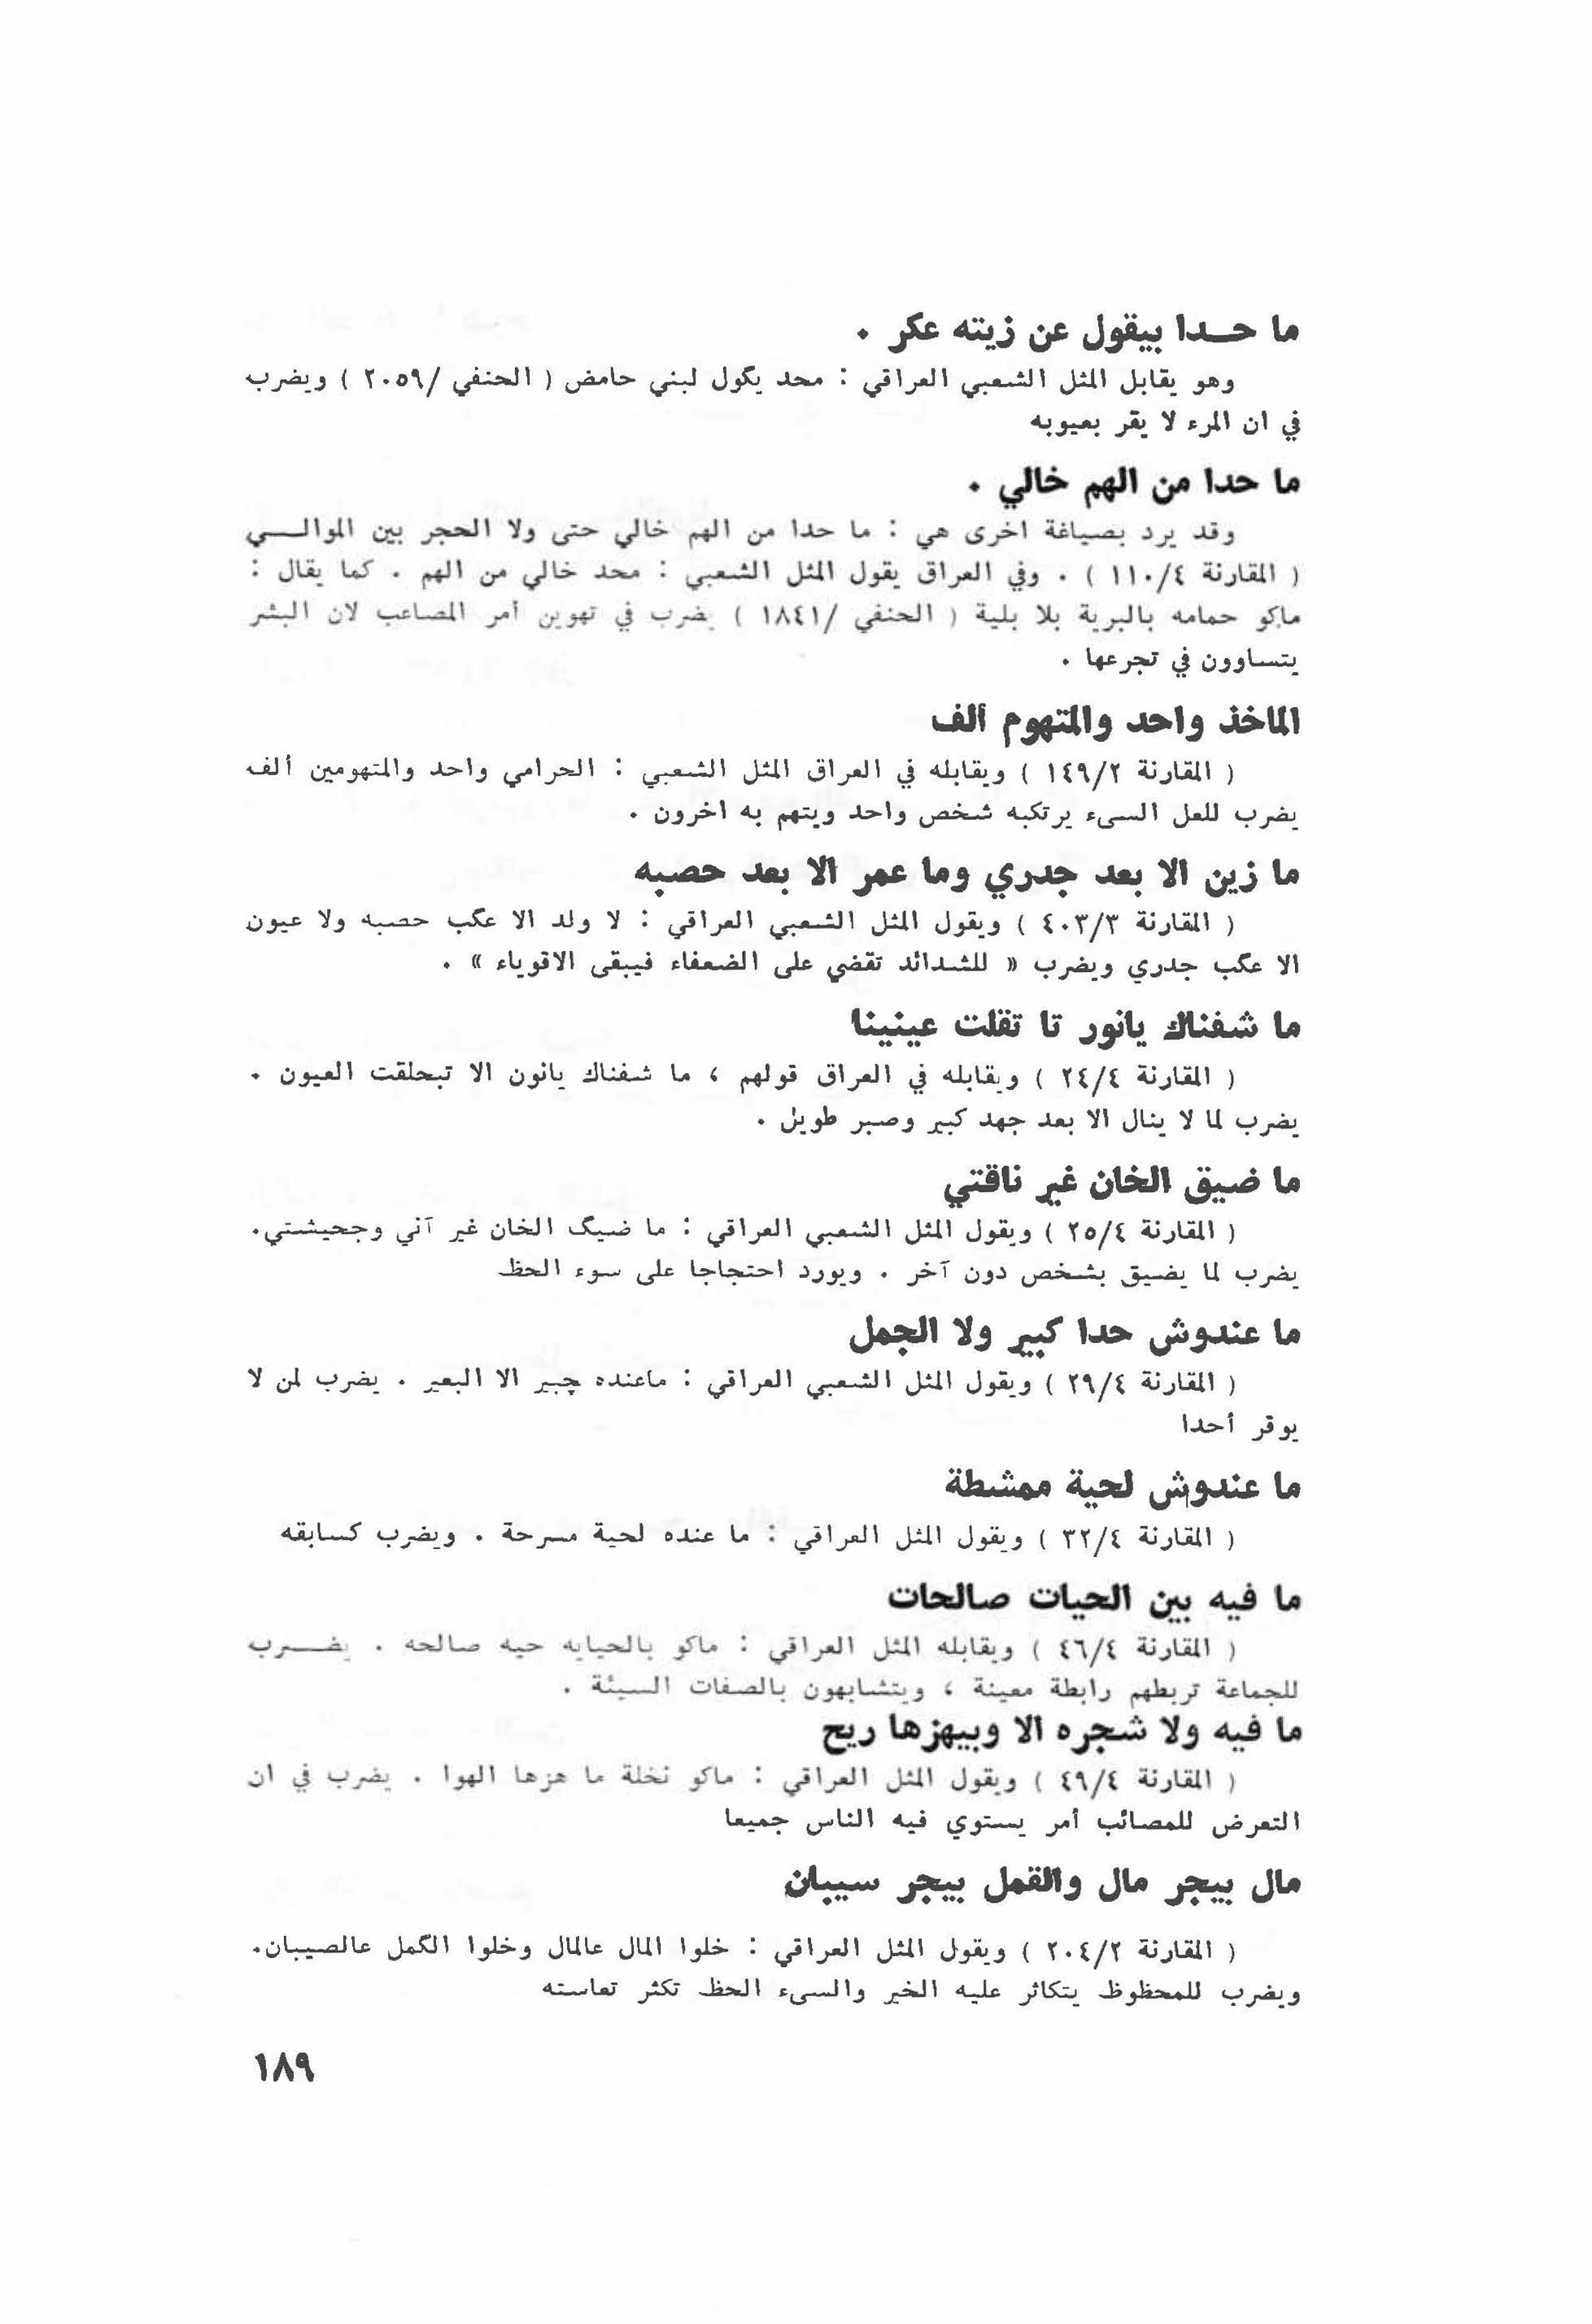 ما حـدا بيقول عن زيته عكر .
وهو يقابل المثل الشعبي العراقي : محد يگول لبني حامض ( الحنفي /٢٠٥٩ ) ويضرب
في ان المرء لا يقر بعيوبه
ما حدا من الهم خالي .
وقد يرد بصياغة اخرى هي : ما حدا من الهم خالي حتى ولا الحجر بين الموالـــي
( المقارنة ١١٠/٤ ) . وفي العراق يقول المثل الشعبي : محد خالي من الهم . كما يقال :
ماكو حمامه بالبرية بلا بلية ( الحنفي /١٨٤١ ) يضرب في تهوين أمر المصاعب لان البشر
يتساوون في تجرعها .
الماخذ واحد والمتهوم ألف
( المقارنة ١٤٩/٢ ) ويقابله في العراق المثل الشعبي : الحرامي واحد والمتهومين ألف
يضرب للعل السىء يرتكبه شخص واحد ويتهم به اخرون .
ما زين الا بعد جدري وما عمر الا بعد حصبه
( المقارنة ٤٠٣/٣ ) ويقول المثل الشعبي العراقي : لا ولد الا عگب حصبه ولا عيون
الا عگب جدري ويضرب « للشدائد تقضي على الضعفاء فيبقى الاقوياء » .
ما شفناك يانور تا تقلت عينينا
( المقارنة ٢٤/٤ ) ويقابله في العراق قولهم ، ما شفناك يانون الا تبحلقت العيون .
يضرب لما لا ينال الا بعد جهد كبير وصبر طويل .
ما ضيق الخان غير ناقتي
( المقارنة ٢٥/٤ ) ويقول المثل الشعبي العراقي : ما ضيگ الخان غير آني وجحيشتي.
يضرب لما يضيق بشخص دون آخر . ويورد احتجاجا على سوء الحظ
ما عندوش حدا كبير ولا الجمل
( المقارنة ٢٩/٤ ) ويقول المثل الشعبي العراقي : ماعنده چبير الا البعير . يضرب لمن لا
يوقر أحدا
ما عندوش لحية ممشطة
( المقارنة ٣٢/٤ ) ويقول المثل العراقي : ما عنده لحية مسرحة . ويضرب كسابقه
ما فيه بين الحيات صالحات
( المقارنة ٤٦/٤ ) ويقابله المثل العراقي : ماكو بالحيايه حيه صالحه . يضـــرب
للجماعة تربطهم رابطة معينة ، ويتشابهون بالصفات السيئة .
ما فيه ولا شجره الا وبيهزها ريح
( المقارنة ٤٩/٤ ) ويقول المثل العراقي : ماكو نخلة ما هزها الهوا . يضرب في ان
التعرض للمصائب أمر يستوي فيه الناس جميعا
مال بيجر مال والقمل بيجر سيبان
( المقارنة ٢٠٤/٢ ) ويقول المثل العراقي : خلوا المال عالمال وخلوا الگمل عالصيبان.
ويضرب للمحظوظ يتكاثر عليه الخير والسىء الحظ تكثر تعاسته
١٨٩